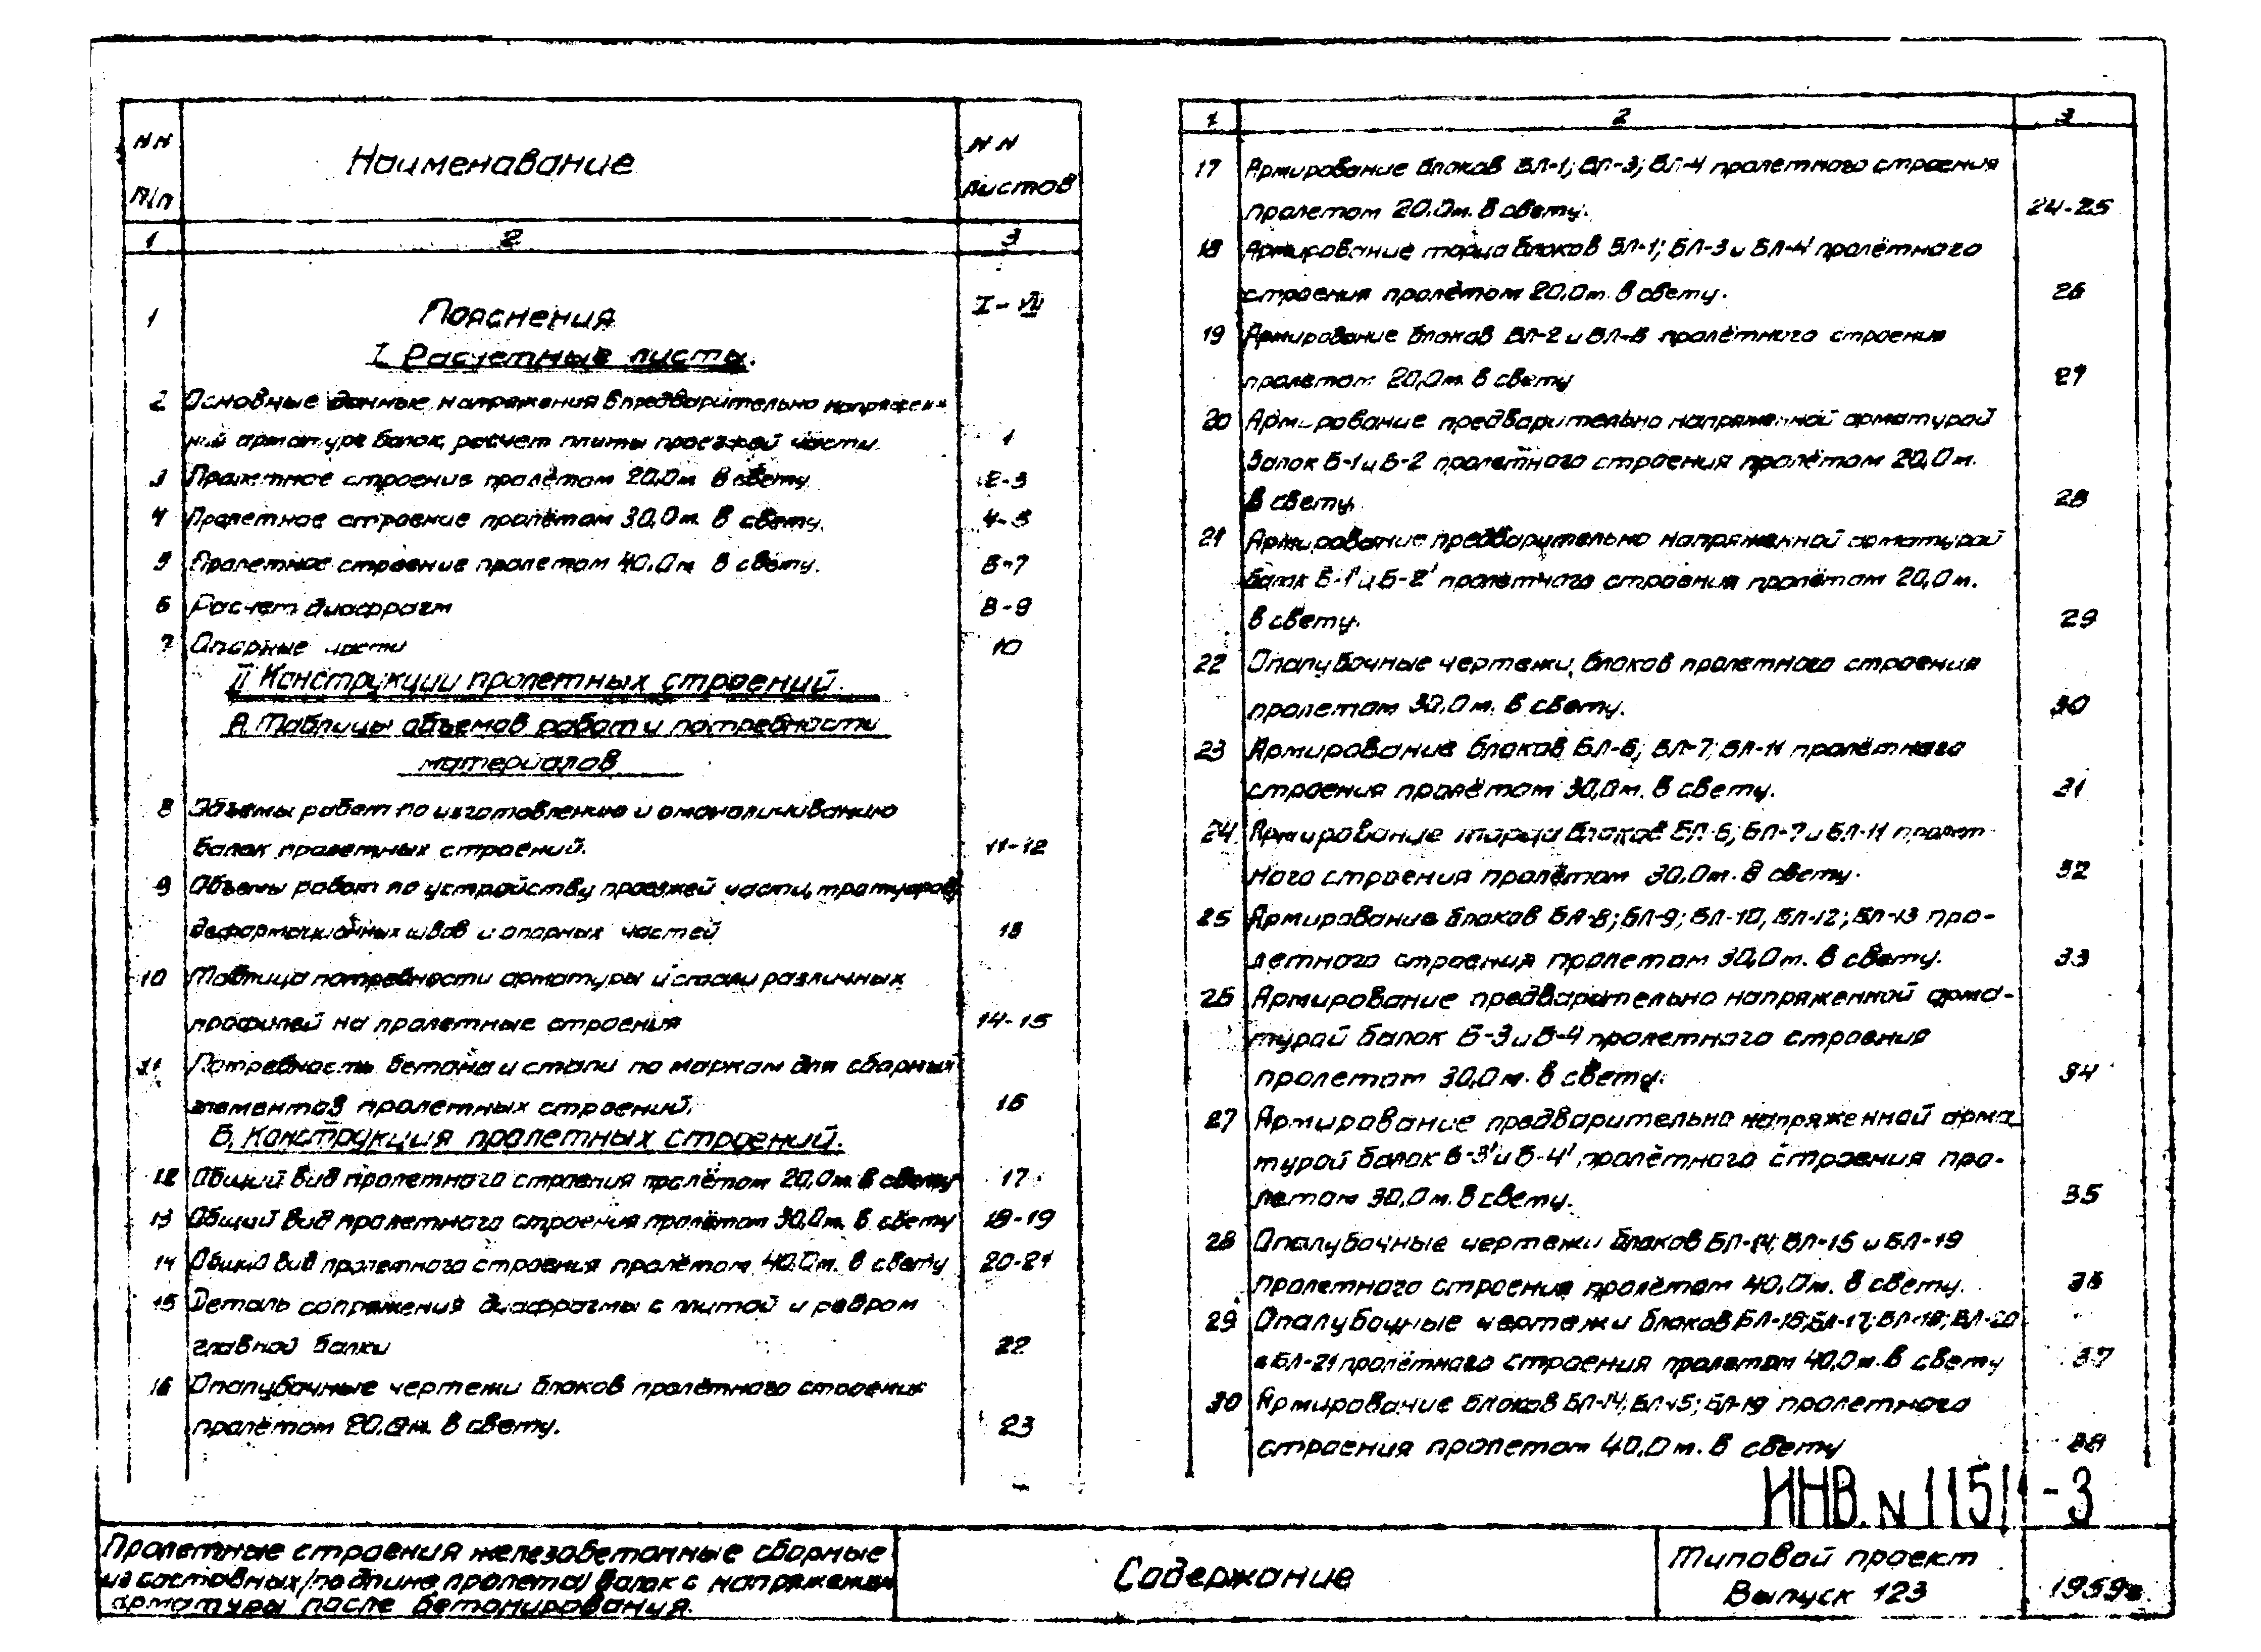 NN
п/п
Наименование
NN
листов
1 2 3
1 Пояснения I-VII
I. Расчетные листы.
2 Основные данные напряжения в предварительно напряжен-
ной арматуре балок, расчет плиты проезжей части. 1
3 Пролетное строение пролётом 20,0м в свету. 2-3
4 Пролетное строение пролётом 30,0м. в свету. 4-5
5 Пролетное строение пролетом 40,0м в свету. 6-7
6 Расчет диафрагм 8-9
7 Опорные части 10
II Конструкции пролетных строений.
А. Таблицы объемов работ и потребности
материалов
8 Объемы работ по изготовлению и омоноличиванию
балок пролетных строений. 11-12
9 Объемы работ по устройству проезжей части, тротуаров,
деформационных швов и опорных частей 13
10 Таблица потребности арматуры и стали различных
профилей на пролетные строения 14-15
11 Потребность бетона и стали по маркам для сборных
элементов пролетных строений. 16
Б. Конструкция пролетных строений.
12 Общий вид пролетного строения пролётом 20,0м. в свету 17
13 Общий вид пролетного строения пролётом 30,0м. в свету 18-19
14 Общий вид пролетного строения пролётом 40,0м. в свету 20-21
15 Деталь сопряжения диафрагмы с плитой и ребром
главной балки 22
16 Опалубочные чертежи блоков пролётного строения
пролётом 20,0м. в свету. 23
1 2 3
17 Армирование блоков БЛ-1; БЛ-3; БЛ-4 пролетного строения
пролетом 20,0м. в свету. 24-25
18 Армирование торца блоков БЛ-1; БЛ-3 и БЛ-4 пролётного
строения пролётом 20,0м. в свету. 26
19 Армирование блоков БЛ-2 и БЛ-5 пролётного строения
пролетом 20,0м. в свету 27
20 Армирование предварительно напряженной арматурой
балок Б-1 и Б-2 пролетного строения пролётом 20,0м.
в свету. 28
21 Армирование предварительно напряженной арматурой
балок Б-1' и Б-2' пролетного строения пролётом 20,0м.
в свету. 29
22 Опалубочные чертежи блоков пролетного строения
пролетом 30,0м. в свету. 30
23 Армирование блоков БЛ-6; БЛ-7; БЛ-11 пролётного
строения пролётом 30,0м. в свету. 31
24 Армирование торца блоков БЛ-6; БЛ-7 и БЛ-11 пролет-
ного строения пролётом 30,0м. в свету. 32
25 Армирование блоков БЛ-8; БЛ-9; БЛ-10, БЛ-12; БЛ-13 про-
летного строения пролетом 30,0м. в свету. 33
26 Армирование предварительно напряженной арма-
турой балок Б-3 и Б-4 пролетного строения
пролетом 30,0м. в свету. 34
27 Армирование предварительно напряженной арма-
турой балок Б-3' и Б-4' пролётного строения про-
летом 30,0м. в свету. 35
28 Опалубочные чертежи блоков БЛ-14; БЛ-15 и БЛ-19
пролетного строения пролётом 40,0м. в свету. 36
29 Опалубочные чертежи блоков БЛ-16; БЛ-17; БЛ-18; БЛ-20
и БЛ-21 пролётного строения пролетом 40,0м. в свету 37
30 Армирование блоков БЛ-14; БЛ-15; БЛ-19 пролетного
строения пролетом 40,0м. в свету 38
ИНВ. N 115/1-3
Пролетные строения железобетонные сборные
из составных /по длине пролета/ балок с напряжением
арматуры после бетонирования.
Содержание
Типовой проект
Выпуск 123
1959г.